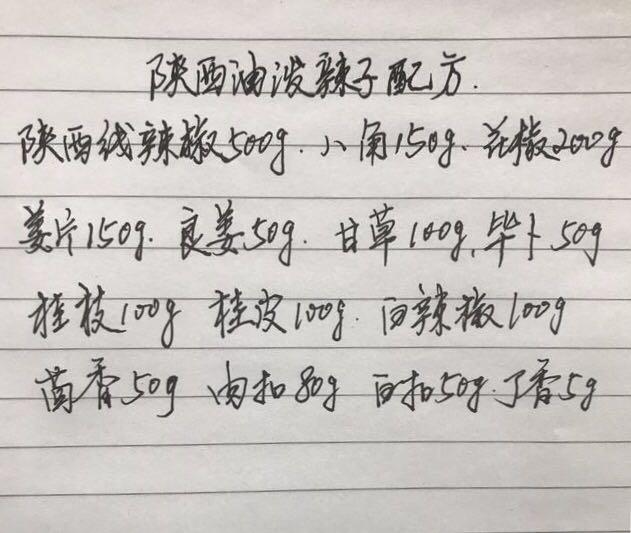 陕西油泼辣子配方.
陕西线辣椒500g.八角150g.花椒200g
姜片150g.良姜50g.甘草100g,毕卜50g
桂枝100g 桂皮100g.白辣椒100g
茴香50g 肉扣80g 白扣50g.丁香5g